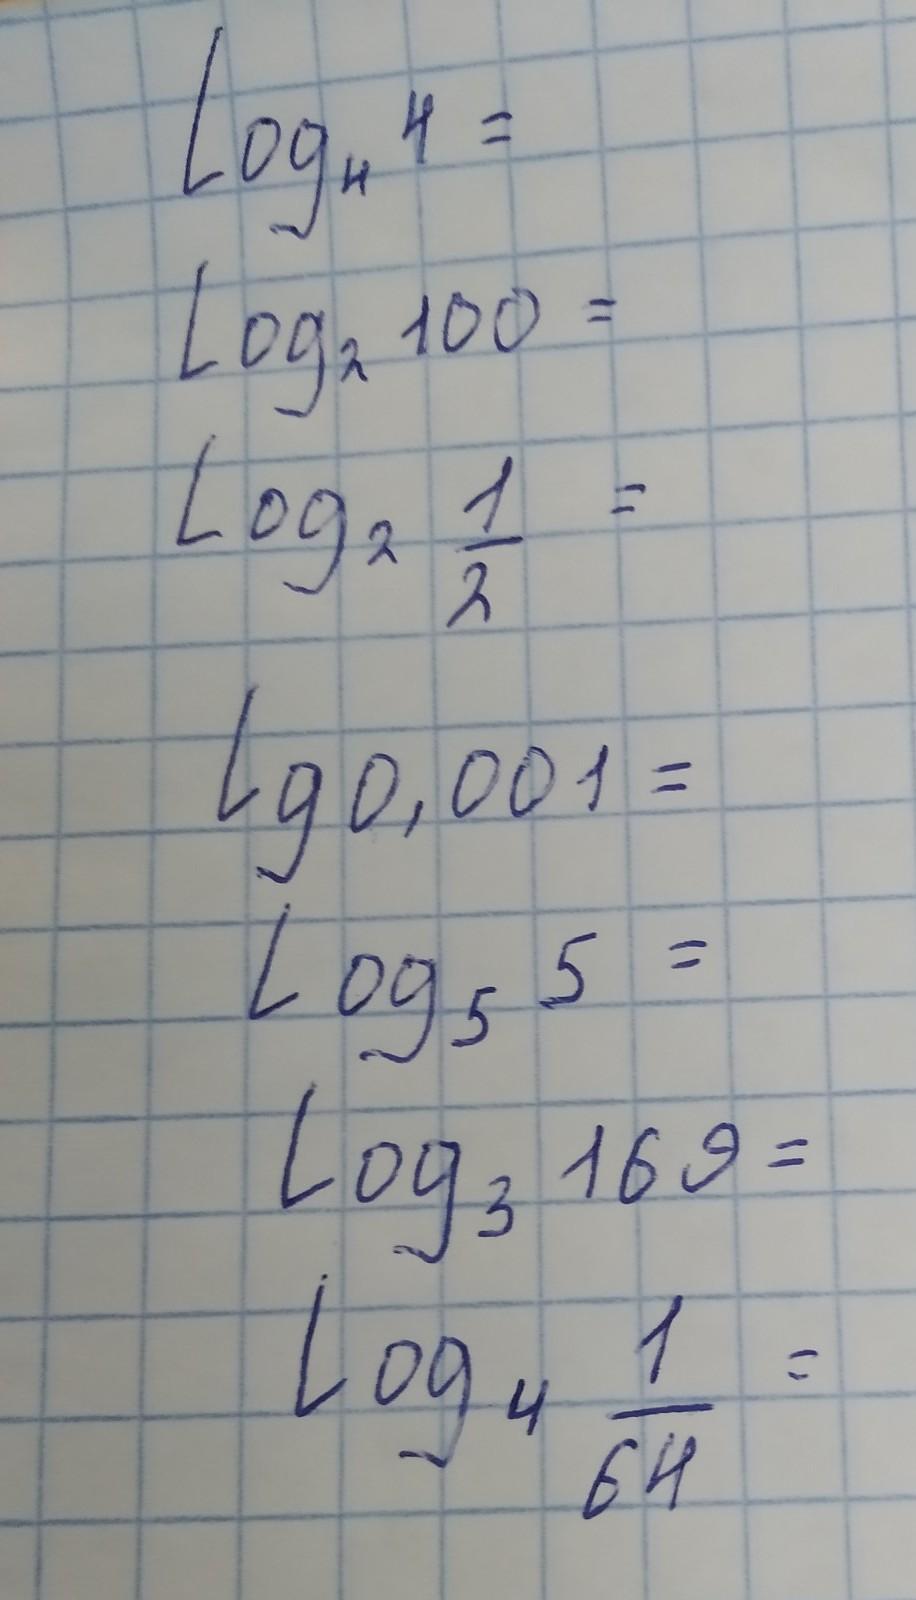 Log₄ 4 =
Log₂ 100 =
Log₂ 1/2 =
Lg 0,001 =
Log₅ 5 =
Log₃ 169 =
Log₄ 1/64 =